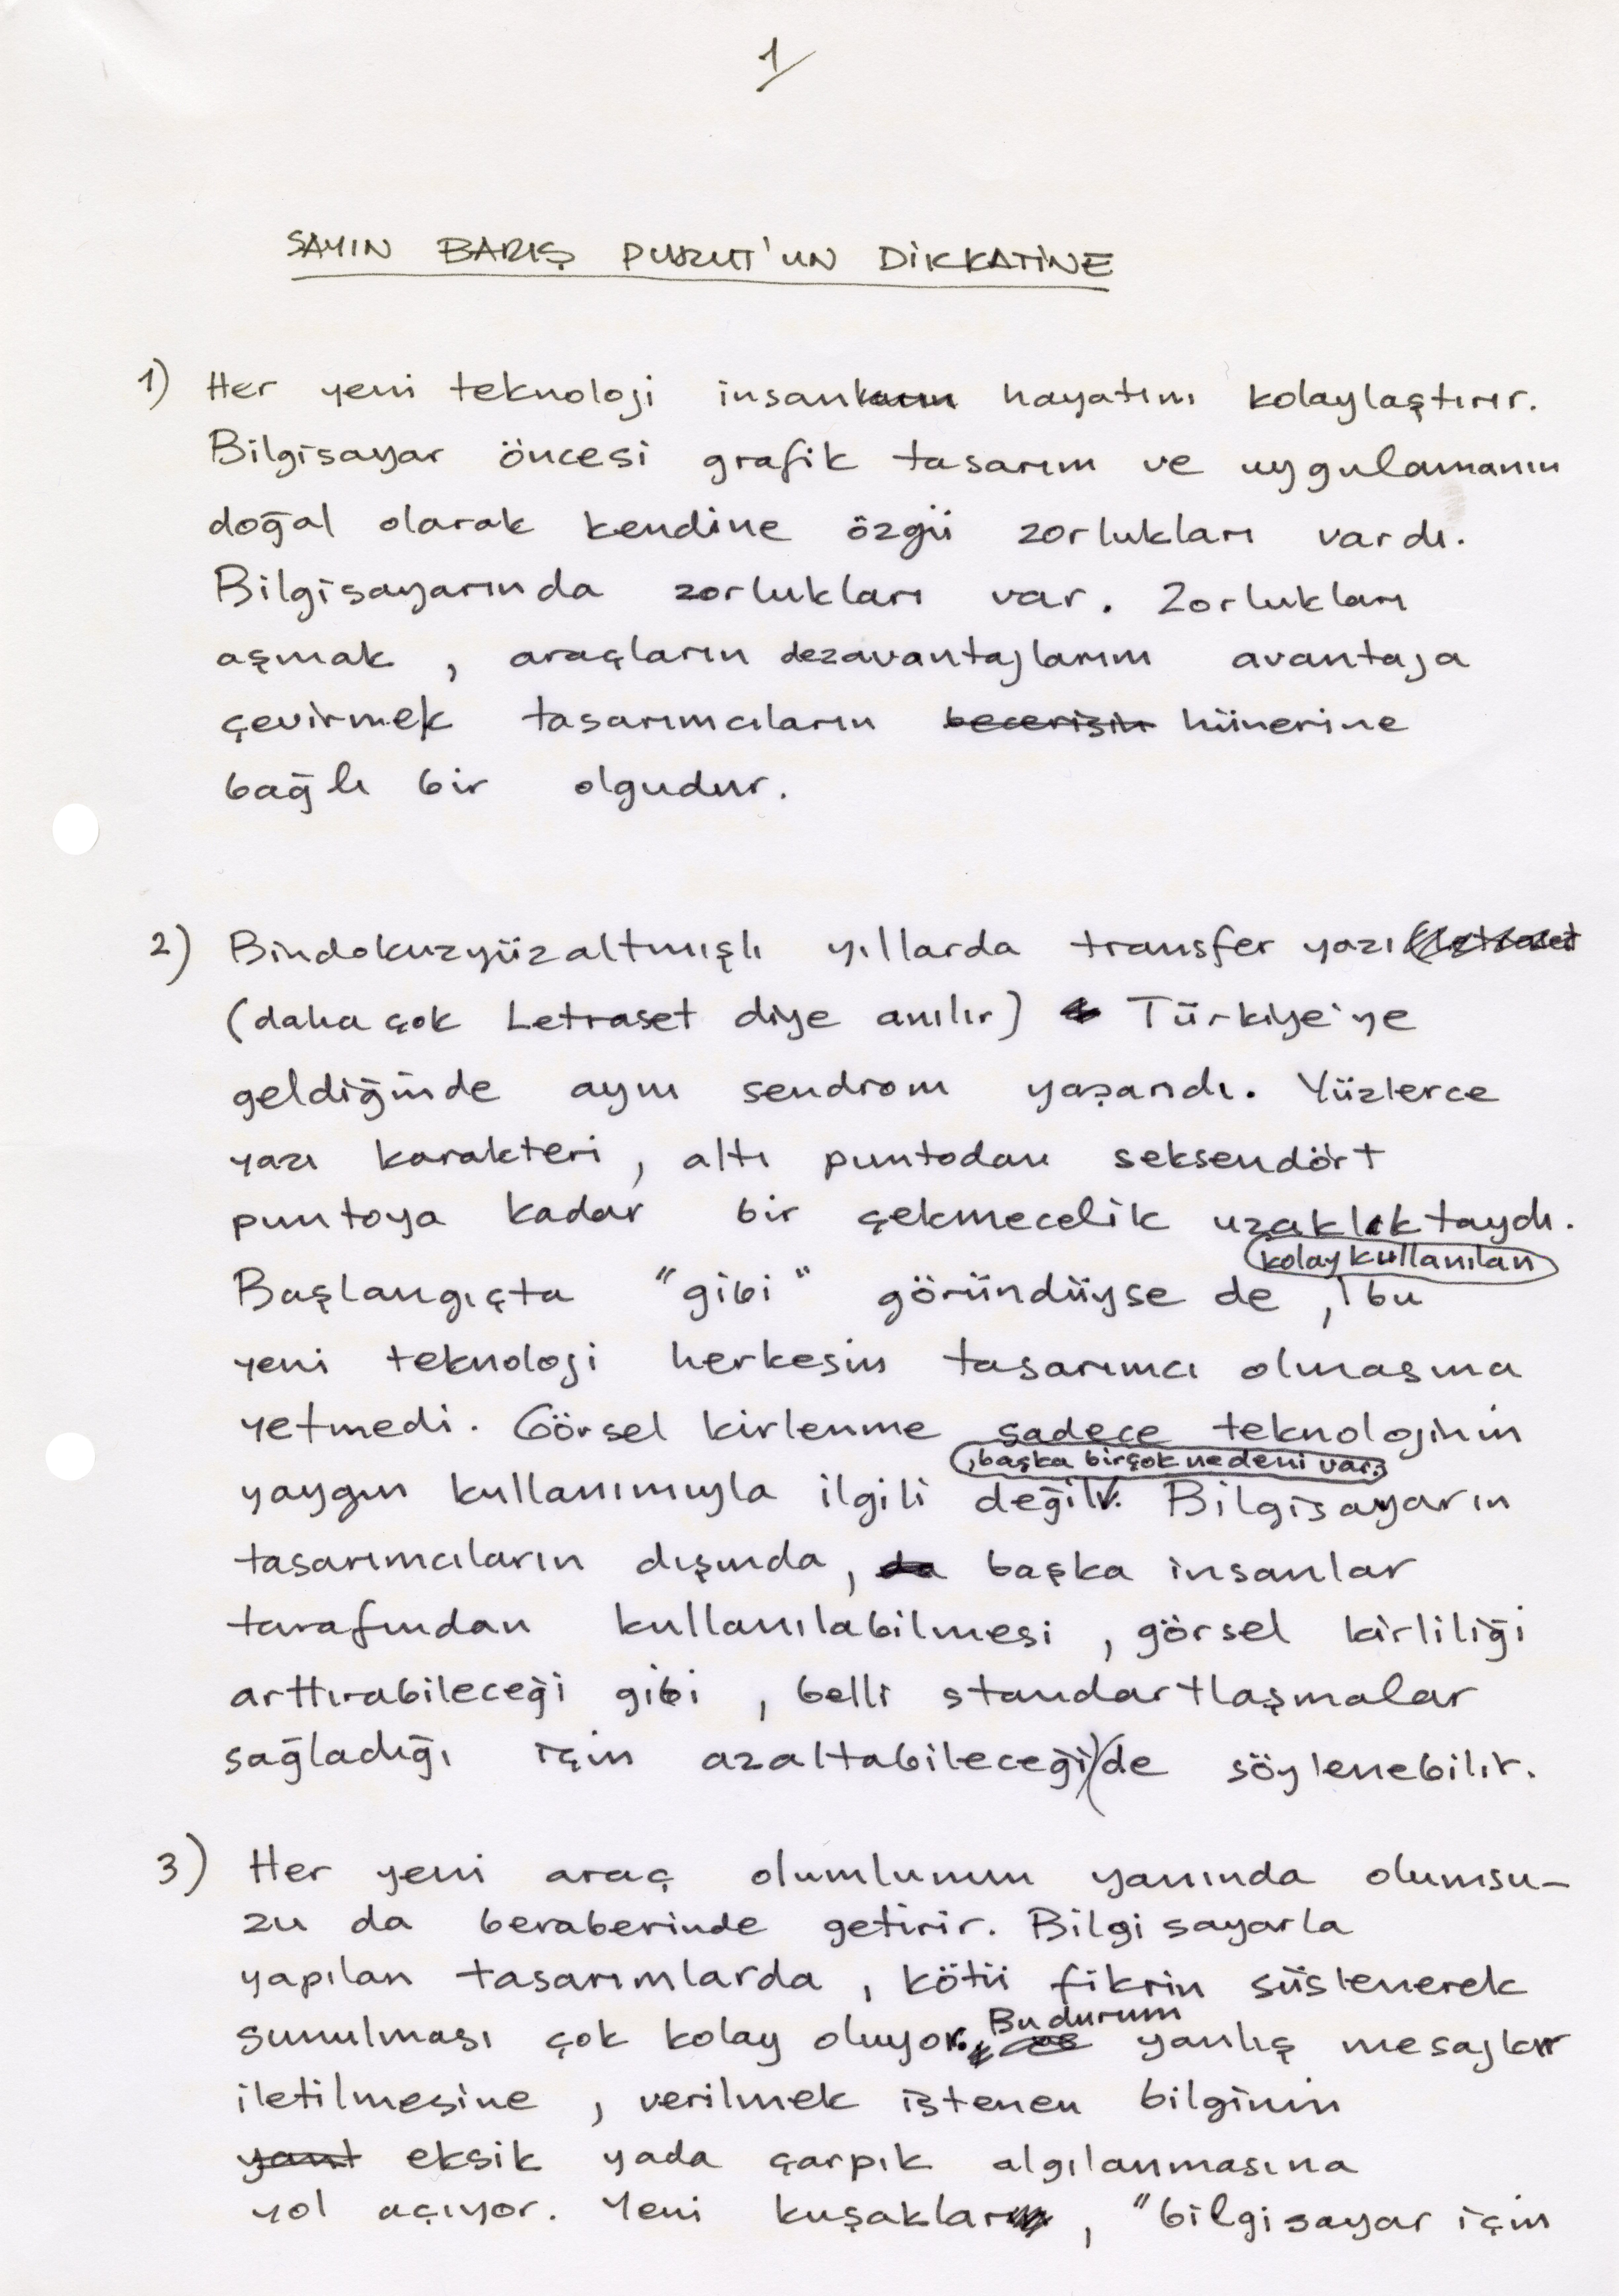 1/
SAYIN BARIŞ PUKUT'UN DİKKATİNE
1) Her yeni teknoloji insan hayatını kolaylaştırır.
Bilgisayar öncesi grafik tasarım ve uygulamanın
doğal olarak kendine özgü zorlukları vardı.
Bilgisayarında zorlukları var. Zorlukları
aşmak , araçların dezavantajlarını avantaja
çevirmek tasarımcıların becerisin hünerine
bağlı bir olgudur.
2) Bindokuzyüzaltmışlı yıllarda transfer yazı (Letraset
(daha çok Letraset diye anılır) Türkiye'ye
geldiğinde aynı sendrom yaşandı. Yüzlerce
yazı karakteri, altı puntodan seksendört
puntoya kadar bir çekmecelik uzaklıktaydı.
kolay kullanılan
Başlangıçta "gibi" göründüyse de , bu
yeni teknoloji herkesin tasarımcı olmasına
yetmedi. Görsel kirlenme sadece teknolojinin
, başka birçok nedeni var.
yaygın kullanımıyla ilgili değil. Bilgisayarın
tasarımcıların dışında, da başka insanlar
tarafından kullanılabilmesi , görsel kirliliği
arttırabileceği gibi , belli standartlaşmalar
sağladığı için azaltabileceği de söylenebilir.
3) Her yeni araç olumlunun yanında olumsu-
zu da beraberinde getirir. Bilgisayarla
yapılan tasarımlarda , kötü fikrin süslenerek
Bu durum
sunulması çok kolay oluyor. yanlış mesajlar
iletilmesine , verilmek istenen bilginin
yanı eksik yada çarpık algılanmasına
yol açıyor. Yeni kuşaklar , "bilgisayar için